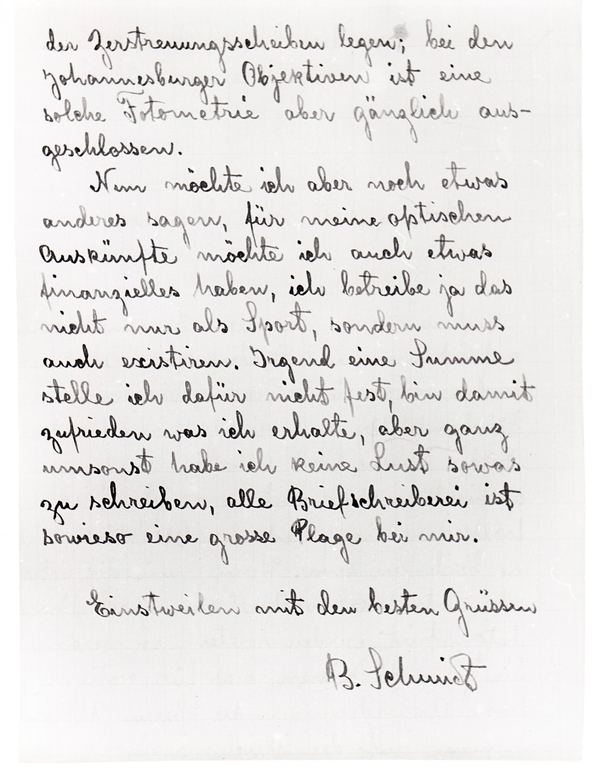 der Zerstreuungsscheiben legen; bei den
Johannesburger Objektiven ist eine
solche Fotometrie aber gänzlich aus-
geschlossen.
Nun möchte ich aber noch etwas
anderes sagen, für meine optischen
Auskünfte möchte ich auch etwas
finanzielles haben, ich betreibe ja das
nicht nur als Sport, sondern muss
auch existiren. Irgend eine Summe
stelle ich dafür nicht fest, bin damit
zufrieden was ich erhalte, aber ganz
umsonst habe ich keine Lust sowas
zu schreiben, alle Briefschreiberei ist
sowieso eine grosse Plage bei mir.
Einstweilen mit den besten Grüssen
B. Schmidt